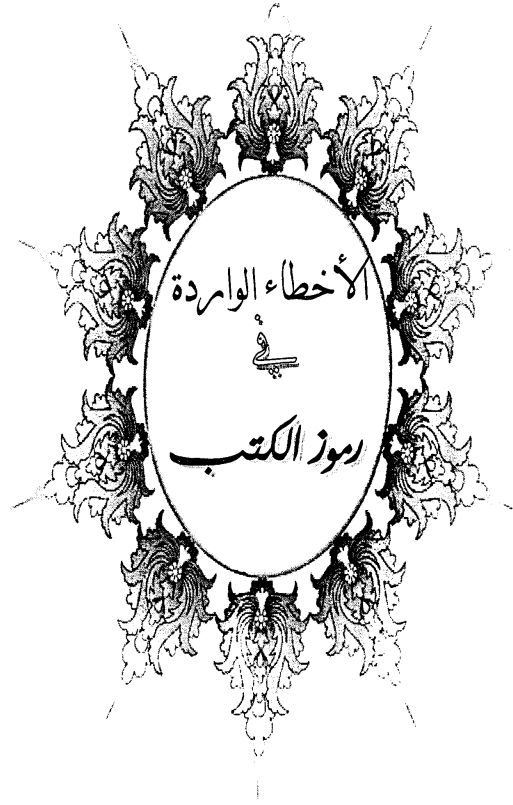 الأخطاء الواردة
في
رموز الكتب